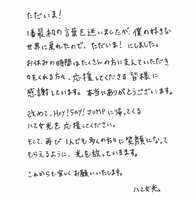 ただいま!
1番最初の言葉を迷いましたが、僕の好きな
世界に戻れたので、ただいま!にしました。
お休みの時間はたくさんの方に支えていただき
力をくれる方々、応援してくださる皆様に
感謝しています。本当にありがとうございます。
改めて、Hey!Say!JUMPに帰ってくる
八乙女光を応援してください。
そして、再び1人でも多くの方に笑顔になって
もらえるように、光を放っていきます。
これからも宜しくお願いいたします。
八乙女光。